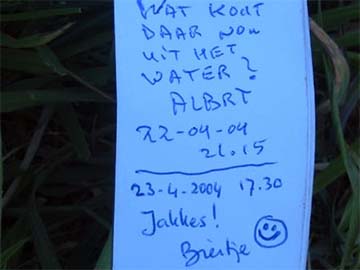 WAT KOMT
DAAR NOU
UIT HET
WATER?
ALBRT
22-04-04
21.15
23-4-2004 17.30
Jakkes!
Briesje